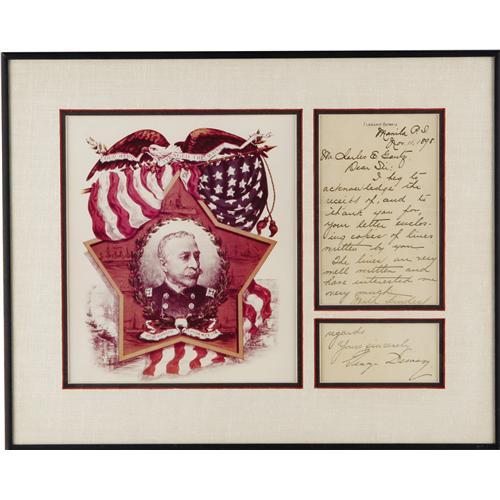 FLAGSHIP OLYMPIA
Manila P.I.
Nov. 11, 1898
Mr Charles E
Dear Sir:
I beg to
acknowledge the
receipt of, and to
thank you for
your letter enclos-
ing copies of lines
written by you
The lines are very
well written and
have interested me
very much
With kindest
regards
Yours sincerely
George Dewey